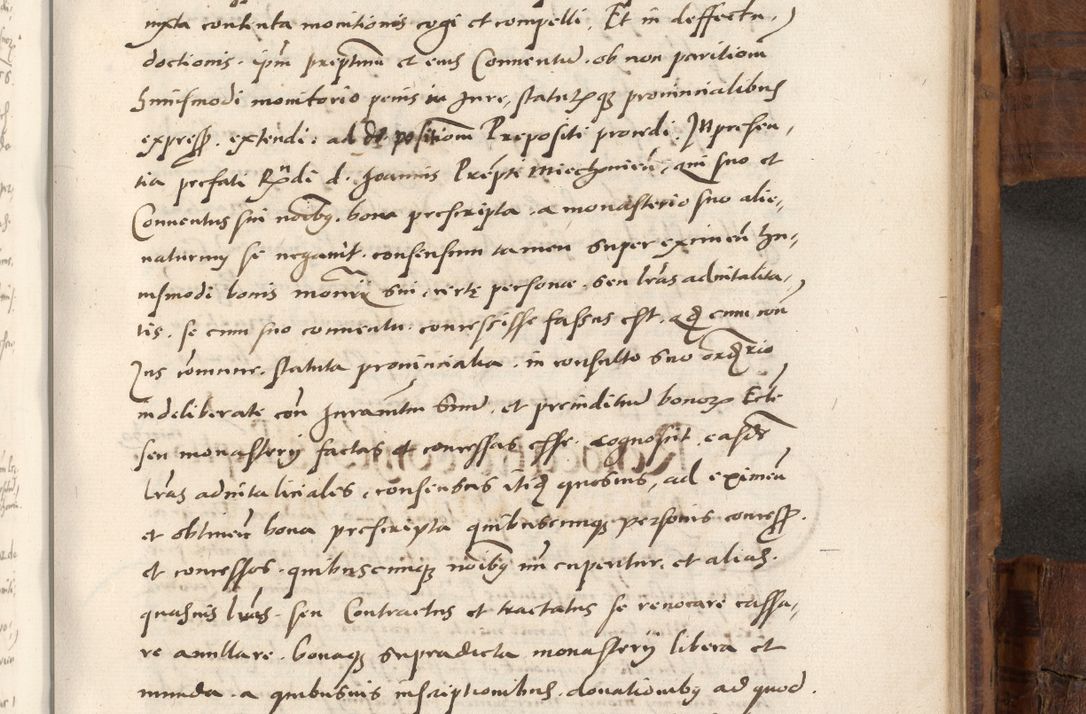 iuxta contenta monitionis cogi et compelli. Et in deffectu
doctionis. ipm prepptum et eius Conuentum. ob non paritiom
huiusmodi monitorio penis in Jure, statutorumque prouincialibus
expressis. extendi: ad depositiom Prepositi procedi. In presen,
tia prefati Rndi d. Joannis Prepti Miechouien, qui suo et
Conuentus sui noibus. bona prescripta. a monasterio suo alie,
naturum se negauit. consensum tamen super eximen hu,
iusmodi bonis monrii sui, certe persone. seu lras aduitalita,
tis. se cum suo conuentu. concessisse fassus est. ad cum con
Jus comune. statuta prouincialia. in consulto suo ordrio
indeliberate con Juramtum suum, et preiuditium bonorum Eccle
seu monasterij factas et concessas esse. cognosit. easdem
lras aduitalitiales, consensus itidem quosuis, ad eximen
et obtinen bona prescripta quibuscumque personis concess.
et concessos. quibuscumque noibus nuncupentur. et alias.
quasuis lras. seu Contractus et tractatus se reuocare cassa,
re anullare. bonaque supradicta monasterij libera et
munda. a quibusuis inscriptionibus. donationibus ad quod.